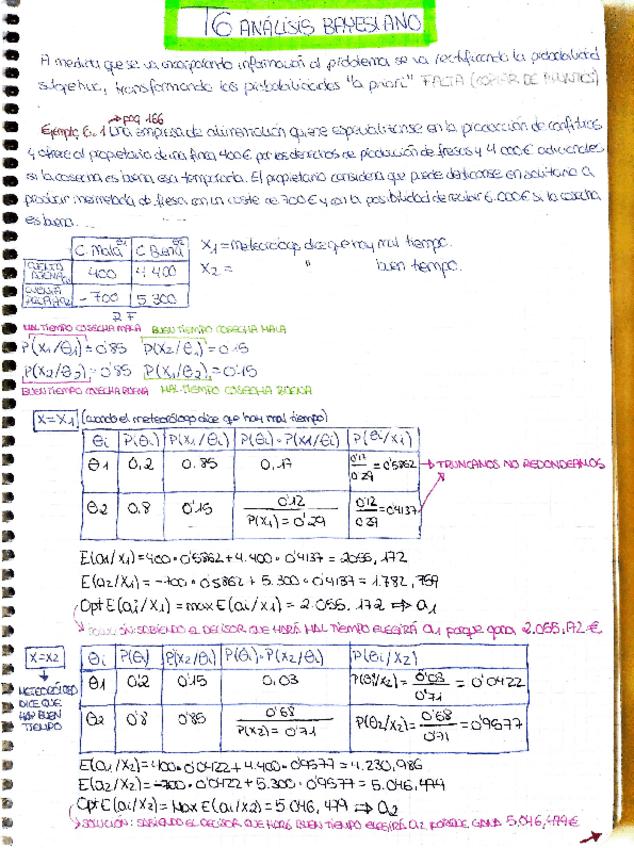 T6 ANÁLISIS BAYESIANO
A medida que se va incorporando información al problema se va rectificando la probabilidad
subjetiva, transformando las probabilidades "a priori" FALTA (COPIAR DE APUNTES)
→ pag 166
Ejemplo 6.1 Una empresa de alimentación quiere especializarse en la producción de confituras
y ofrece al propietario de una finca 400€ por los derechos de producción de fresas y 4.000€ adicionales
si la cosecha es buena esa temporada. El propietario considera que puede dedicarse en solitario a
producir mermelada de fresa con un coste de 700€ y con la posibilidad de recibir 6.000€ si la cosecha
es buena.
C. Mala θ1 C. Buena θ2
CUENTA AJENA a1 400 4.400
CUENTA PROPIA a2 -700 5.300
X1 = meteorólogo dice que hay mal tiempo.
X2 = " buen tiempo.
MAL TIEMPO COSECHA MALA BUEN TIEMPO COSECHA MALA
P(X1/θ1) = 0'85 P(X2/θ1) = 0'15
P(X2/θ2) = 0'85 P(X1/θ2) = 0'15
BUEN TIEMPO COSECHA BUENA MAL TIEMPO COSECHA BUENA
X=X1 (cuando el meteorólogo dice que hay mal tiempo)
θi P(θi) P(X1/θi) P(θi)·P(X1/θi) P(θi/X1)
θ1 0,2 0,85 0,17 0'17/0'29 = 0'5862 → TRUNCAMOS NO REDONDEAMOS
θ2 0,8 0'15 0'12 0'12/0'29 = 0'4137
P(X1) = 0'29
E(a1/X1) = 400·0'5862 + 4.400·0'4137 = 2055,172
E(a2/X1) = -700·0'5862 + 5.300·0'4137 = 1.782,759
Opt E(ai/X1) = max E(ai/X1) = 2.055,172 ⇒ a1
↳ SOLUCIÓN: SABIENDO EL DECISOR QUE HARÁ MAL TIEMPO ELEGIRÁ a1 porque gana 2.055,172€
X=X2
METEORÓLOGO
DICE QUE
HAY BUEN
TIEMPO
θi P(θi) P(X2/θi) P(θi)·P(X2/θi) P(θi/X2)
θ1 0'2 0'15 0,03 P(θ1/X2) = 0'03/0'71 = 0'0422
θ2 0'8 0'85 0'68 P(θ2/X2) = 0'68/0'71 = 0'9577
P(X2) = 0'71
E(a1/X2) = 400·0'0422 + 4.400·0'9577 = 4.230,986
E(a2/X2) = -700·0'0422 + 5.300·0'9577 = 5.046,479
Opt E(ai/X2) = Max E(ai/X2) = 5.046,479 ⇒ a2
↳ SOLUCIÓN: SABIENDO EL DECISOR QUE HARÁ BUEN TIEMPO ELEGIRÁ a2 PORQUE GANA 5.046,479€